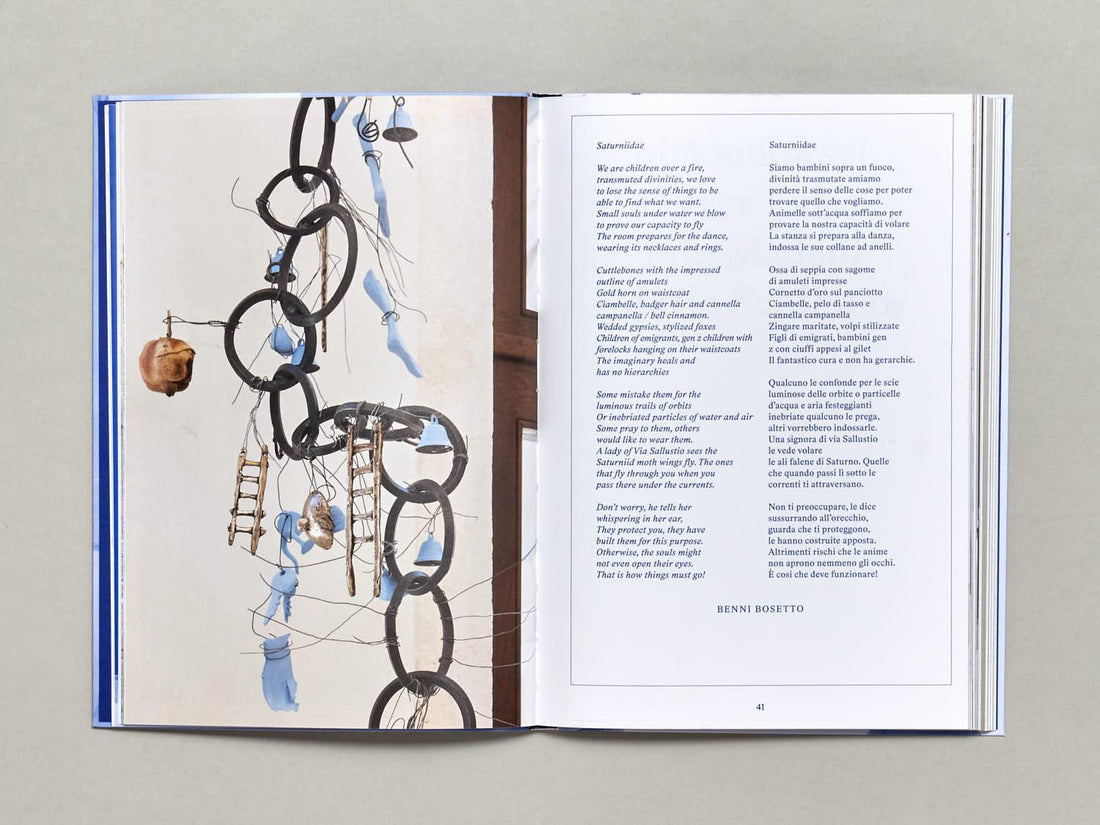 Saturniidae
We are children over a fire,
transmuted divinities, we love
to lose the sense of things to be
able to find what we want.
Small souls under water we blow
to prove our capacity to fly
The room prepares for the dance,
wearing its necklaces and rings.
Cuttlebones with the impressed
outline of amulets
Gold horn on waistcoat
Ciambelle, badger hair and cannella
campanella / bell cinnamon.
Wedded gypsies, stylized foxes
Children of emigrants, gen z children with
forelocks hanging on their waistcoats
The imaginary heals and
has no hierarchies
Some mistake them for the
luminous trails of orbits
Or inebriated particles of water and air
Some pray to them, others
would like to wear them.
A lady of Via Sallustio sees the
Saturniid moth wings fly. The ones
that fly through you when you
pass there under the currents.
Don't worry, he tells her
whispering in her ear,
They protect you, they have
built them for this purpose.
Otherwise, the souls might
not even open their eyes.
That is how things must go!
Saturniidae
Siamo bambini sopra un fuoco,
divinità trasmutate amiamo
perdere il senso delle cose per poter
trovare quello che vogliamo.
Animelle sott'acqua soffiamo per
provare la nostra capacità di volare
La stanza si prepara alla danza,
indossa le sue collane ad anelli.
Ossa di seppia con sagome
di amuleti impresse
Cornetto d'oro sul panciotto
Ciambelle, pelo di tasso e
cannella campanella
Zingare maritate, volpi stilizzate
Figli di emigrati, bambini gen
z con ciuffi appesi al gilet
Il fantastico cura e non ha gerarchie.
Qualcuno le confonde per le scie
luminose delle orbite o particelle
d'acqua e aria festeggianti
inebriate qualcuno le prega,
altri vorrebbero indossarle.
Una signora di via Sallustio
le vede volare
le ali falene di Saturno. Quelle
che quando passi lì sotto le
correnti ti attraversano.
Non ti preoccupare, le dice
sussurrando all'orecchio,
guarda che ti proteggono,
le hanno costruite apposta.
Altrimenti rischi che le anime
non aprono nemmeno gli occhi.
È così che deve funzionare!
BENNI BOSETTO
41